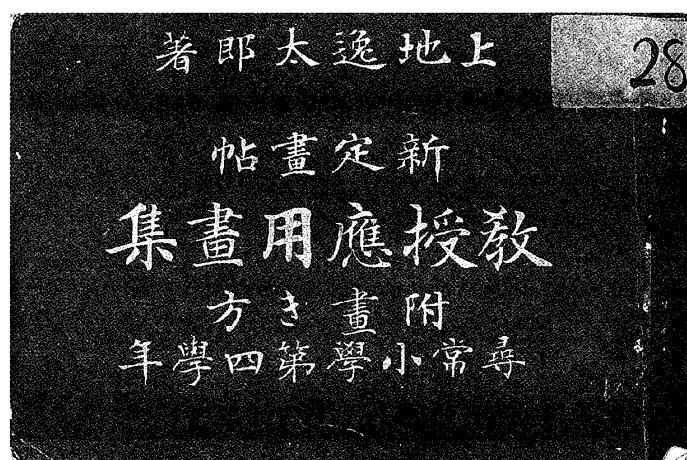 上地逸太郎著
28
新定畫帖
教授應用畫集
附畫き方
尋常小學第四學年